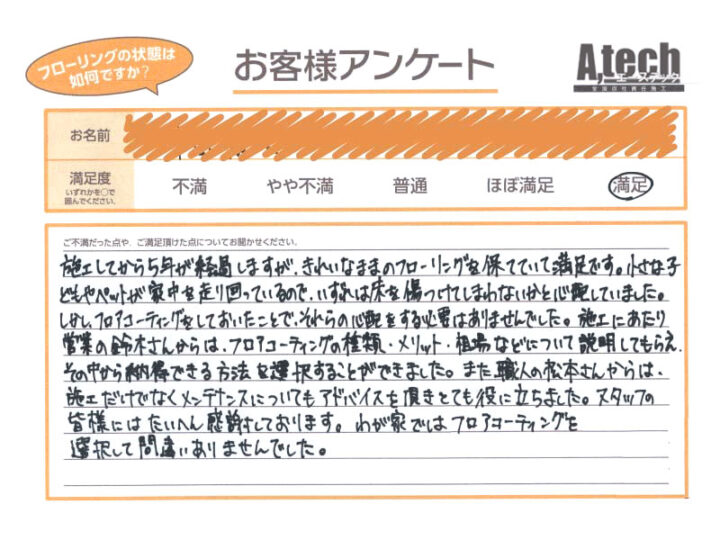 フローリングの状態は
如何ですか?
お客様アンケート
A,tech
エーステック
全国自社責任施工
お名前
満足度
いずれかを〇で
囲んでください。
不満 やや不満 普通 ほぼ満足 満足
ご不満だった点や、ご満足頂けた点についてお聞かせください。
施工してから5年が経過しますが、きれいなままのフローリングを保てていて満足です。小さな子
どもやペットが家中を走り回っているので、いずれは床を傷つけてしまわないかと心配していました。
しかし、フロアコーティングをしておいたことで、それらの心配をする必要はありませんでした。施工にあたり
営業の鈴木さんからは、フロアコーティングの種類・メリット・相場などについて説明してもらえ、
その中から納得できる方法を選択することができました。また職人の松本さんからは、
施工だけでなくメンテナンスについてもアドバイスを頂きとても役に立ちました。スタッフの
皆様にはたいへん感謝しております。わが家ではフロアコーティングを
選択して間違いありませんでした。